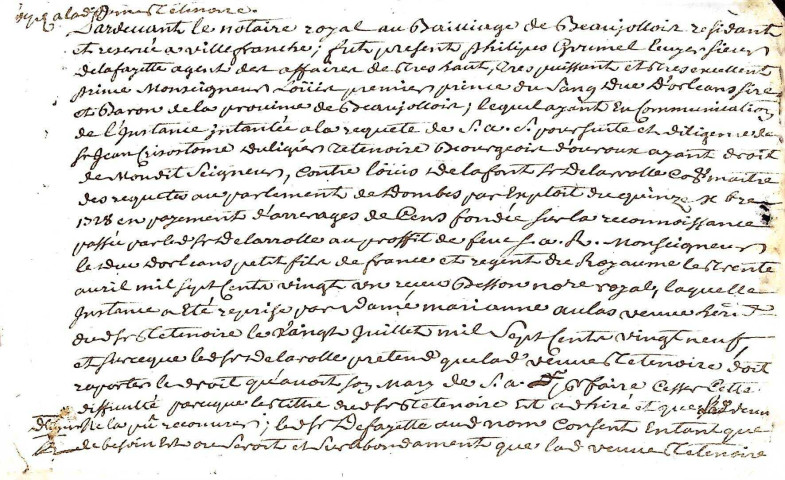 Pardevant le notaire royal au Bailliage de Beaujollois residant
et reservé a villefranche; fut present philipes Grumel Ecuyer sieur
delafayette agent des affaires de tres haut, tres puissant et tres excellent
prince Monseigneur Loüis premier prince du Sang Duc D'orleans sire
et Baron de la province de Beaujollois; lequel ayant Eu Communication
de L'Instance intantée a la requete de S. a. S. poursuite et diligence de
sr Jean Crisostome Tetenoire Bourgeois d'ouroux ayant droit
de Mondit Seigneur, contre loüis delafont sr Delarolle Coner maitre
des requetes au parlement de Dombes par Exploit du quinze xbre
1728 en payement d'arrerages de Cens fondée sur la reconnoissance
passée par led sr Delarrolle au proffit de feu S. a. R. Monseigneur
le duc dorleans petit fils de france et regent du Royaume le trente
avril mil sept Cents vingt un receu Besson nore royal, laquelle
Instance a Eté reprise par Dame marianne aulas veuve
du d sr tetenoire le vingt Juillet mil Sept Cents vingt neuf,
et surceque led sr Delarolle pretend que lad veuve tetenoire doit
raporter le droit qu'avoit son Mary de S. a. S. pr faire Cesser Cette
difficulté parceque le titre dud sr tetenoire Est adhiré et que
de la pu recouvrer; led sr Delafayette aud nom Consent Entant que
de besoin Est ou Seroit et Surabondament que lad veuve tetenoire